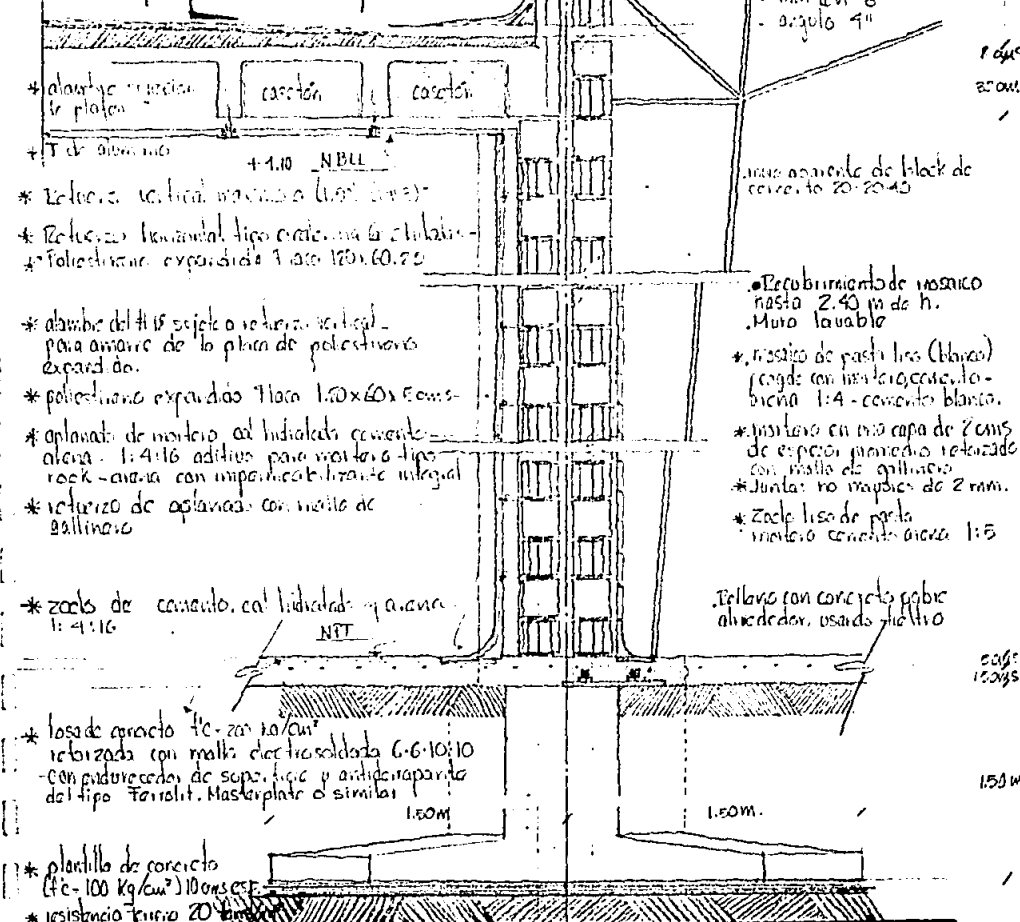 - angulo 4"
* alambre
de plafon
casetón
casetón
* T de aluminio
+4.10 NBLL
* Refuerzo vertical
* Refuerzo horizontal tipo
* Poliestireno expandido Placa 120x60.25
* alambre del # 18 sujeto a refuerzo vertical
para amarre de la placa de poliestireno
expandido.
* poliestireno expandido Placa 1.20x60x5cms-
* aplanado de mortero cal hidratada cemento-
arena - 1:4:16 aditivo para mortero tipo
rock-arena con impermeabilizante integral
* refuerzo de aplanado con malla de
gallinero
* zoclo de cemento, cal hidratada y arena
1:4:16
NPT
* losa de concreto f'c-200 kg/cm²
reforzada con malla electrosoldada 6-6-10:10
-con endurecedor de superficie y antiderrapante
del tipo Ferrolit, Masterplate o similar
1.50m
1.50m.
* plantilla de concreto
(f'c-100 Kg/cm²) 10cms esp.
* resistencia terreno 20
muro aparente de block de
cemento 20-20-40
.Recubrimiento de mosaico
hasta 2.40 m de h.
.Muro lavable
* mosaico de pasta liso (blanco)
pegado con mortero, cemento-
arena 1:4 - cemento blanco.
* mortero en una capa de 2cms
de espesor promedio reforzado
con malla de gallinero
* Juntas no mayores de 2 mm.
* Zoclo liso de pasta
mortero cemento arena 1:5
.Relleno con concreto pobre
alrededor, usando fieltro
1.50 m